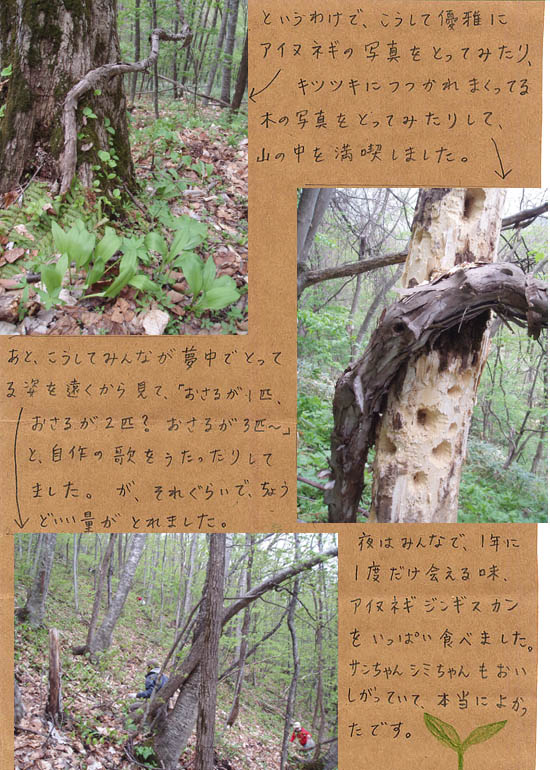 というわけで、こうして優雅に
アイヌネギの写真をとってみたり、
キツツキにつつかれまくってる
木の写真をとってみたりして、
山の中を満喫しました。
あと、こうしてみんなが夢中でとって
る姿を遠くから見て、「おさるが1匹、
おさるが2匹？おさるが3匹〜」
と、自作の歌をうたったりして
ました。が、それぐらいで、ちょう
どいい量がとれました。
夜はみんなで、1年に
1度だけ会える味、
アイヌネギジンギスカン
をいっぱい食べました。
サンちゃんシミちゃんもおい
しがっていて、本当によかっ
たです。